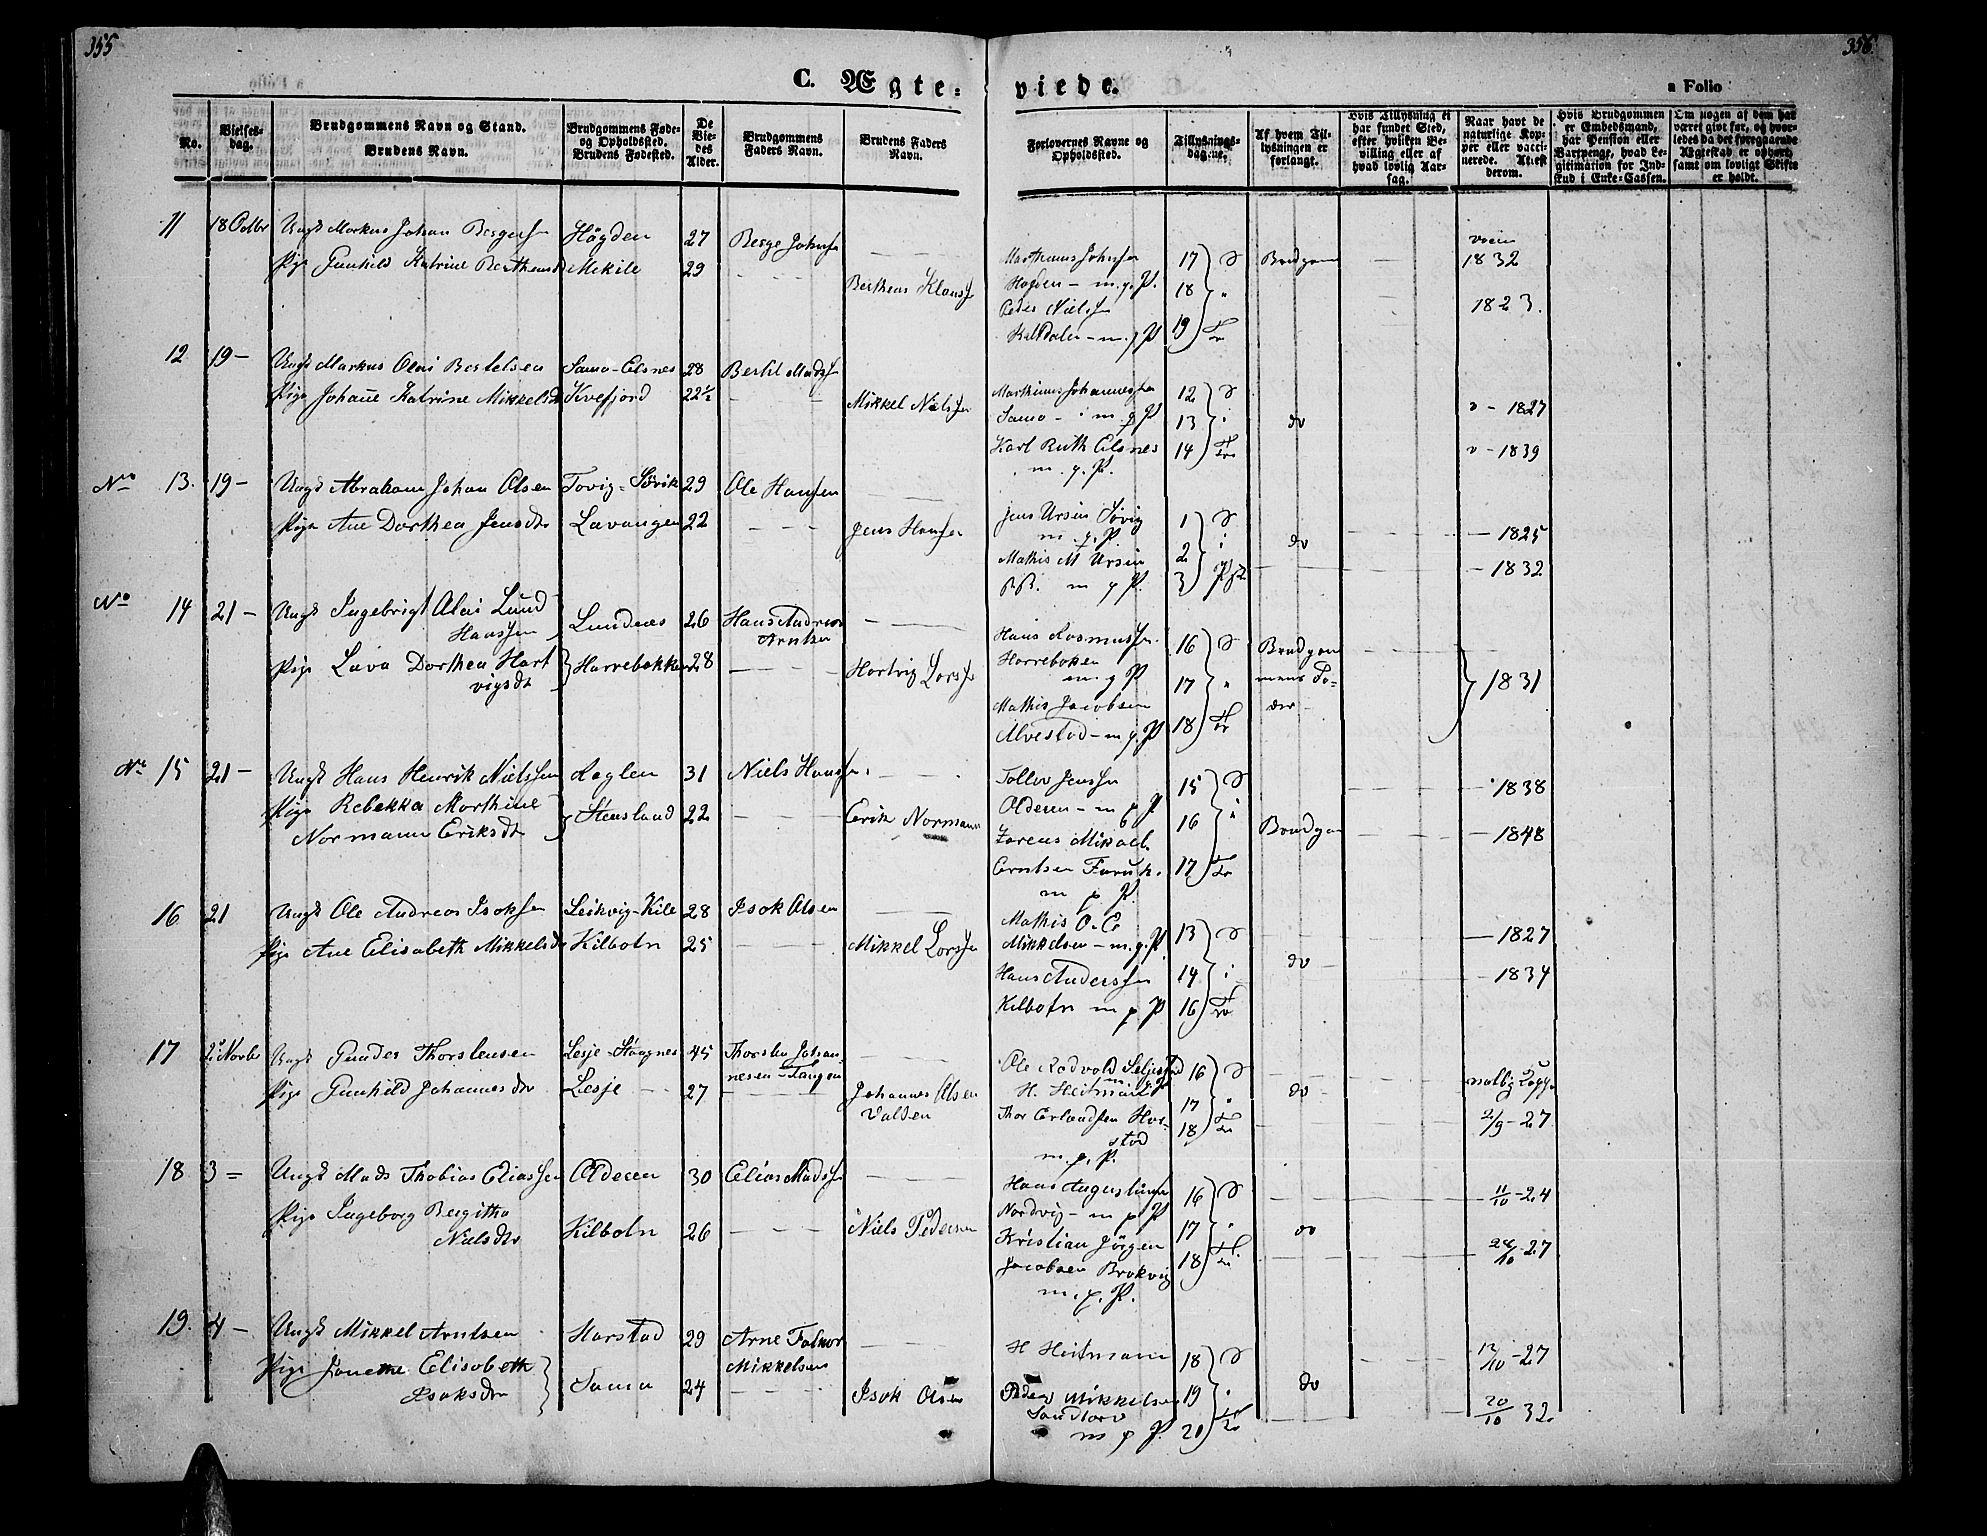 355
356
C. Ægte-
viede.
a Folio
No.
Vielses-
dag.
Brudgommens Navn og Stand.
Brudens Navn.
Brudgommens Føde-
og Opholdsted.
Brudens Fødested.
De
Vie-
des
Alder.
Brudgommens
Faders Navn.
Brudens Faders
Navn.
Forlovernes Navne og
Opholdsted.
Tillysnings-
dagene.
Af hvem Til-
lysningen er
forlangt.
Hvis Tillysning ei
har fundet Sted,
efter hvilken Be-
villing eller af
hvad lovlig Aar-
sag.
Naar havt de
naturlige Kop-
per eller vacci-
nerede. Attest
derom.
Hvis Brudgommen
er Embedsmand,
har Pension eller
Vartpenge, hvad Le-
gitimation for Ind-
skud i Enke-Cassen.
Om nogen af dem har
været givt før, og hvor-
ledes da det foregaaende
Ægteskab er ophørt,
samt om lovligt Skifte
er holdt.
11 18 Octbr Ungk Markus Johan Bergersen Høgden 27 Berge Johnsen
Pige Gunhild Katrine Berthensd Mekile 29 Berthens Klausen
Marthinus Johnsen 17 Brudgom 1832
Hogden - m. p. P. 18
Peder Nielsen 1823.
Kildalen - m. p. P 19
12 19 - Ungk Markus Olai Bertelsen Sama-Elsnes 28 Bertil Madsen
Pige Johane Katrine Mikkelsd Kvefjord 22½ Mikkel Nielsen
Marthinus Johannesen 12
Sama - m p P 13 do v - 1827
Karl Ruth Elsnes 14 v - 1839
m. p. P.
No 13. 19 - Ungk Abraham Johan Olsen Tovig-Søvik 29 Ole Hansen
Pige Ane Dorthea Jensdtr Lavangen 22 Jens Hansen
Jens Ursin Tovig 1
m. p. P. do - 1825
Mathis M Ursin 2
m p P. 3 - 1832
No 14 21 - Ungk Ingebrigt Olai Lund
Hanssen Lundenes 26 Hans Andreas
Arntsen
Pige Lava Dorthea Hart
vigsdt Harrebakken 28 Hartvig Larsen
Hans Rasmussen 16 Brudgom
Harreboken
m p P 17 mens Fa-
der 1831
Mathis Jacobsen
Alvestad - m p. P 18
No 15 21 - Ungk Hans Henrik Nielsen Røglen 31 Niels Hansen
Pige Rebekka Marthine
Normann Eriksdtr Stensland 22 Erik Normann
Tollev Jensen 15 - 1838
Olderen - m p P 16
Zareus Mikael Brudgom - 1848
Erntsen 17
m p P.
16 21 Ungk Ole Andreas Isaksen Leikvig-Kile 28 Isak Olsen
Pige Ane Elisabeth Mikkelsdtr Kilbotn 25 Mikkel Larsen
Mathis O. E
Mikkelsen - m. p. P 13 - 1827
Hans Andersen 14 do - 1834
Kilbotn m p. P 16
17 2 Novbr Ungk Gunder Thorstensen Lesje-Stangnes 45 Thorsten Johan-
nesen - Tangen
Pige Gunhild Johannesdtr Lesje 27 Johannes Olsen
Valden
Ole Rødvold 16
H. Heitmann 17 do
Thor Erlandsen Har-
stad 18 2/9 - 27
m. p. P.
18 3 = Ungk Mads Thobias Eliassen Olderen 30 Elias Madsen
Pige Ingeborg Bergitha
Nielsdtr Kilbotn 26 Niels Pedersen
Hans Augustinsen 16 11/10 - 24
Nordvig - m p P 17 do
Kristian Jørgen 18 24/10 - 27
Jacobsen Brokvig
m. p. P.
19. 4 - Ungk Mikkel Arntsen Harstad 29 Arne Falkor
Mikkelsen
Pige Janethe Elisabeth
Isaksdtr Sama 24 Isak Olsen
H Heitmann 18 12/10 - 27
Peder Mikkelsen 19 do
Sandtorv 20/10 32.
m p P. 20